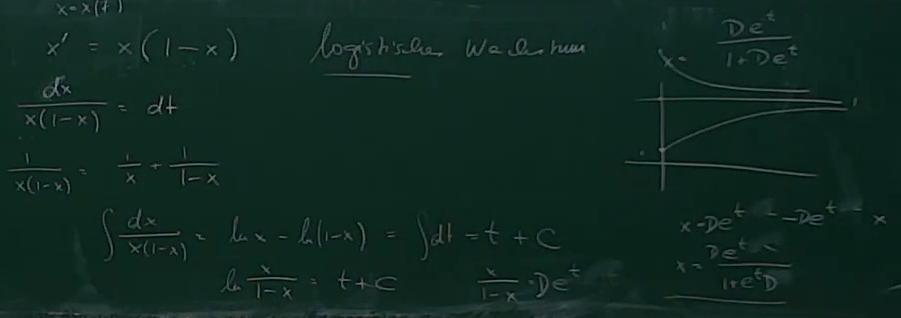 x = x(t)
x' = x(1-x) logistisches Wachstum
dx/x(1-x) = dt
1/x(1-x) = 1/x + 1/1-x
∫ dx/x(1-x) = ln x - ln(1-x) = ∫dt = t + C
ln x/1-x = t + C x/1-x = De^t
x = De^t/1+De^t
1
x = De^t/1+e^tD